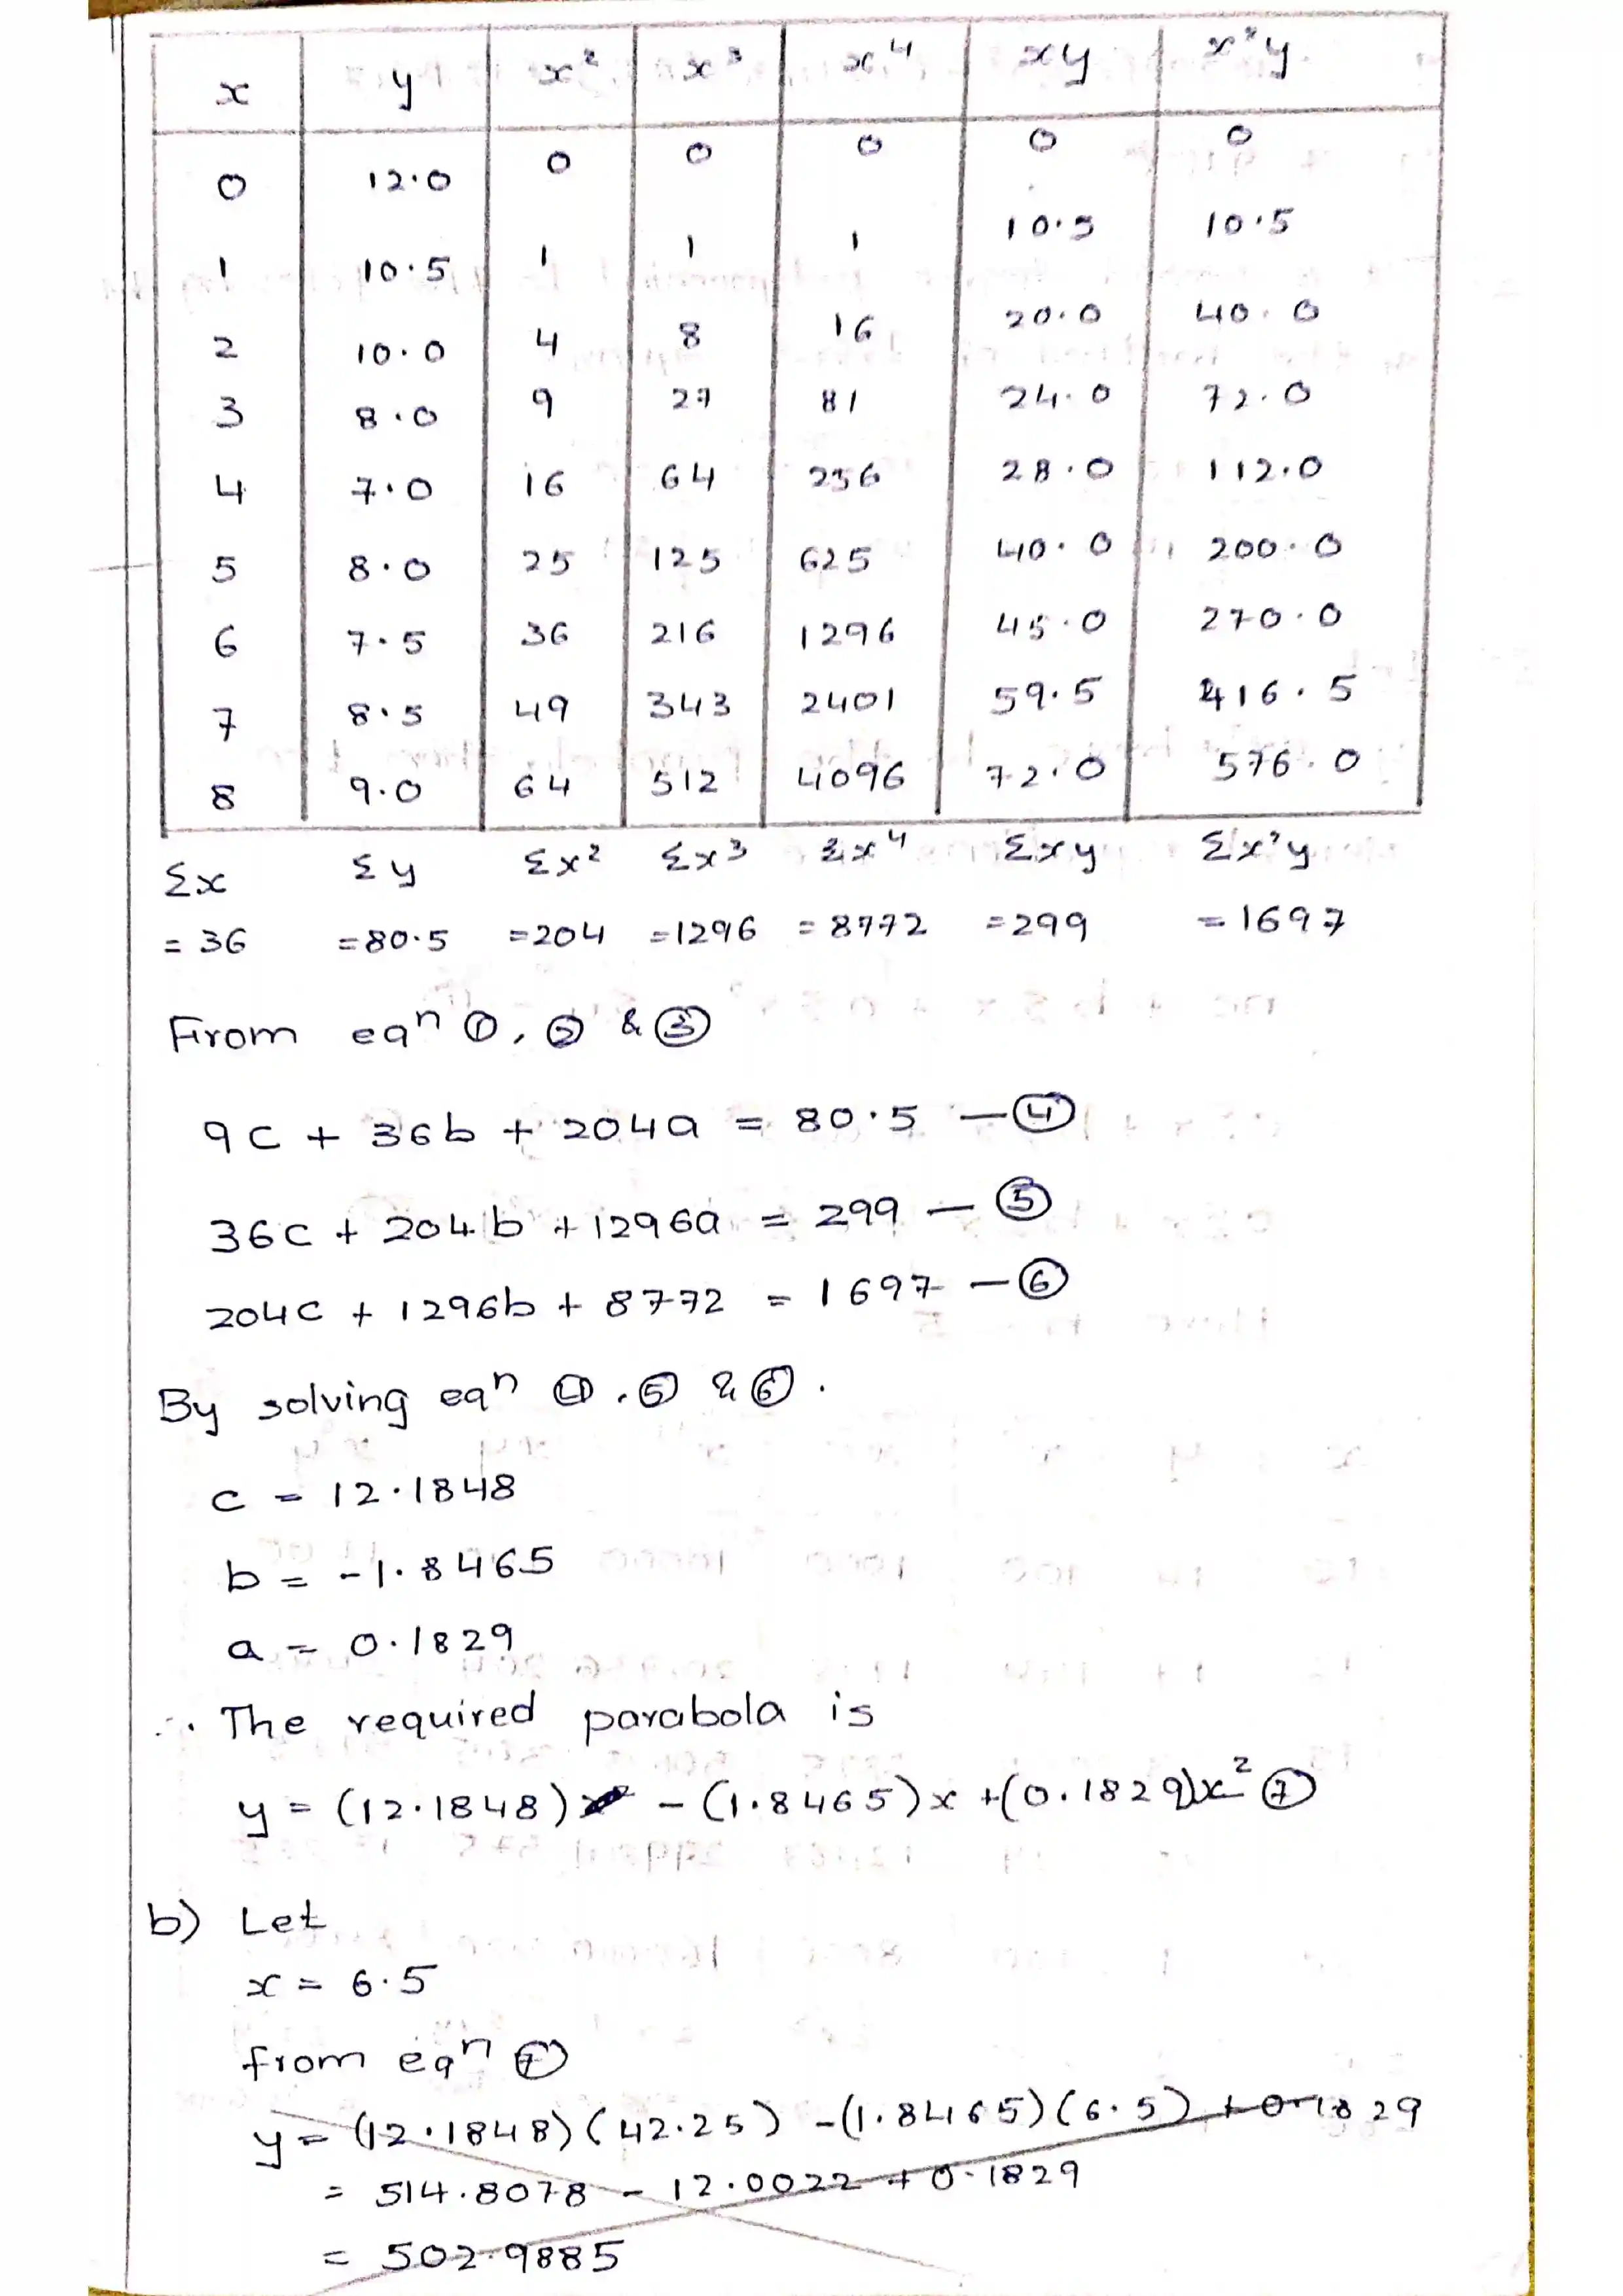 x y x² x³ x⁴ xy x²y
0 12.0 0 0 0 0 0
1 10.5 1 1 1 10.5 10.5
2 10.0 4 8 16 20.0 40.0
3 8.0 9 27 81 24.0 72.0
4 7.0 16 64 256 28.0 112.0
5 8.0 25 125 625 40.0 200.0
6 7.5 36 216 1296 45.0 270.0
7 8.5 49 343 2401 59.5 416.5
8 9.0 64 512 4096 72.0 576.0
Σx Σy Σx² Σx³ Σx⁴ Σxy Σx²y
= 36 =80.5 =204 =1296 = 8772 =299 = 1697
From eqⁿ ①, ② & ③
9c + 36b + 204a = 80.5 — ④
36c + 204b + 1296a = 299 — ⑤
204c + 1296b + 8772 = 1697 — ⑥
By solving eqⁿ ④, ⑤ & ⑥.
c = 12.1848
b = -1.8465
a = 0.1829
∴ The required parabola is
y = (12.1848) - (1.8465)x + (0.1829)x² ⑦
b) Let
x = 6.5
from eqⁿ ⑦
y = (12.1848)(42.25) - (1.8465)(6.5) + 0.1829
= 514.8078 - 12.0022 + 0.1829
= 502.9885